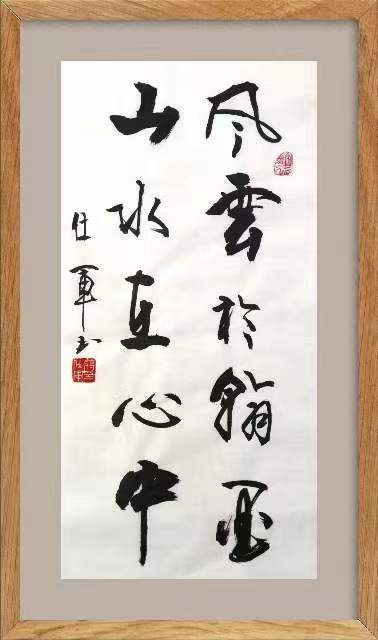 风雲於翰墨
山水在心中
仕軍书